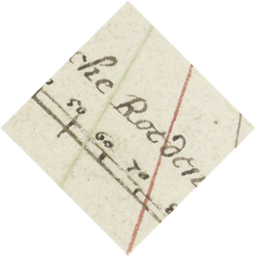 che Rotden
50 60 70